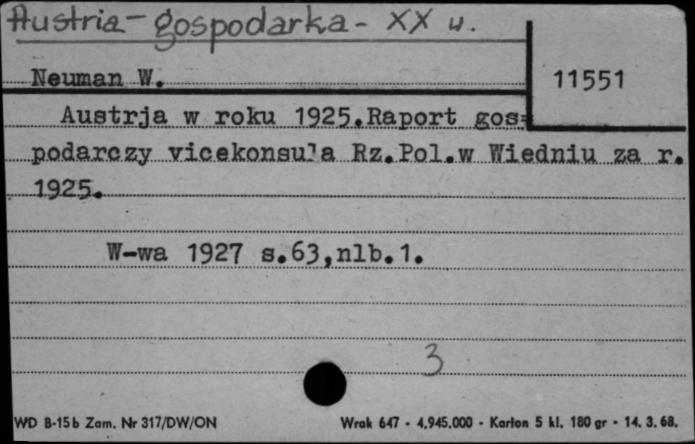 Austria - gospodarka - XX w.
Neuman W.
11551
Austrja w roku 1925.Raport gos=
podarczy vicekonsula Rz.Pol.w Wiedniu za r.
1925.
W-wa 1927 s.63,nlb.1.
3
WD B-15b Zam. Nr 317/DW/ON
Wrak 647 - 4.945.000 - Karton 5 kl. 180 gr - 14. 3. 68.